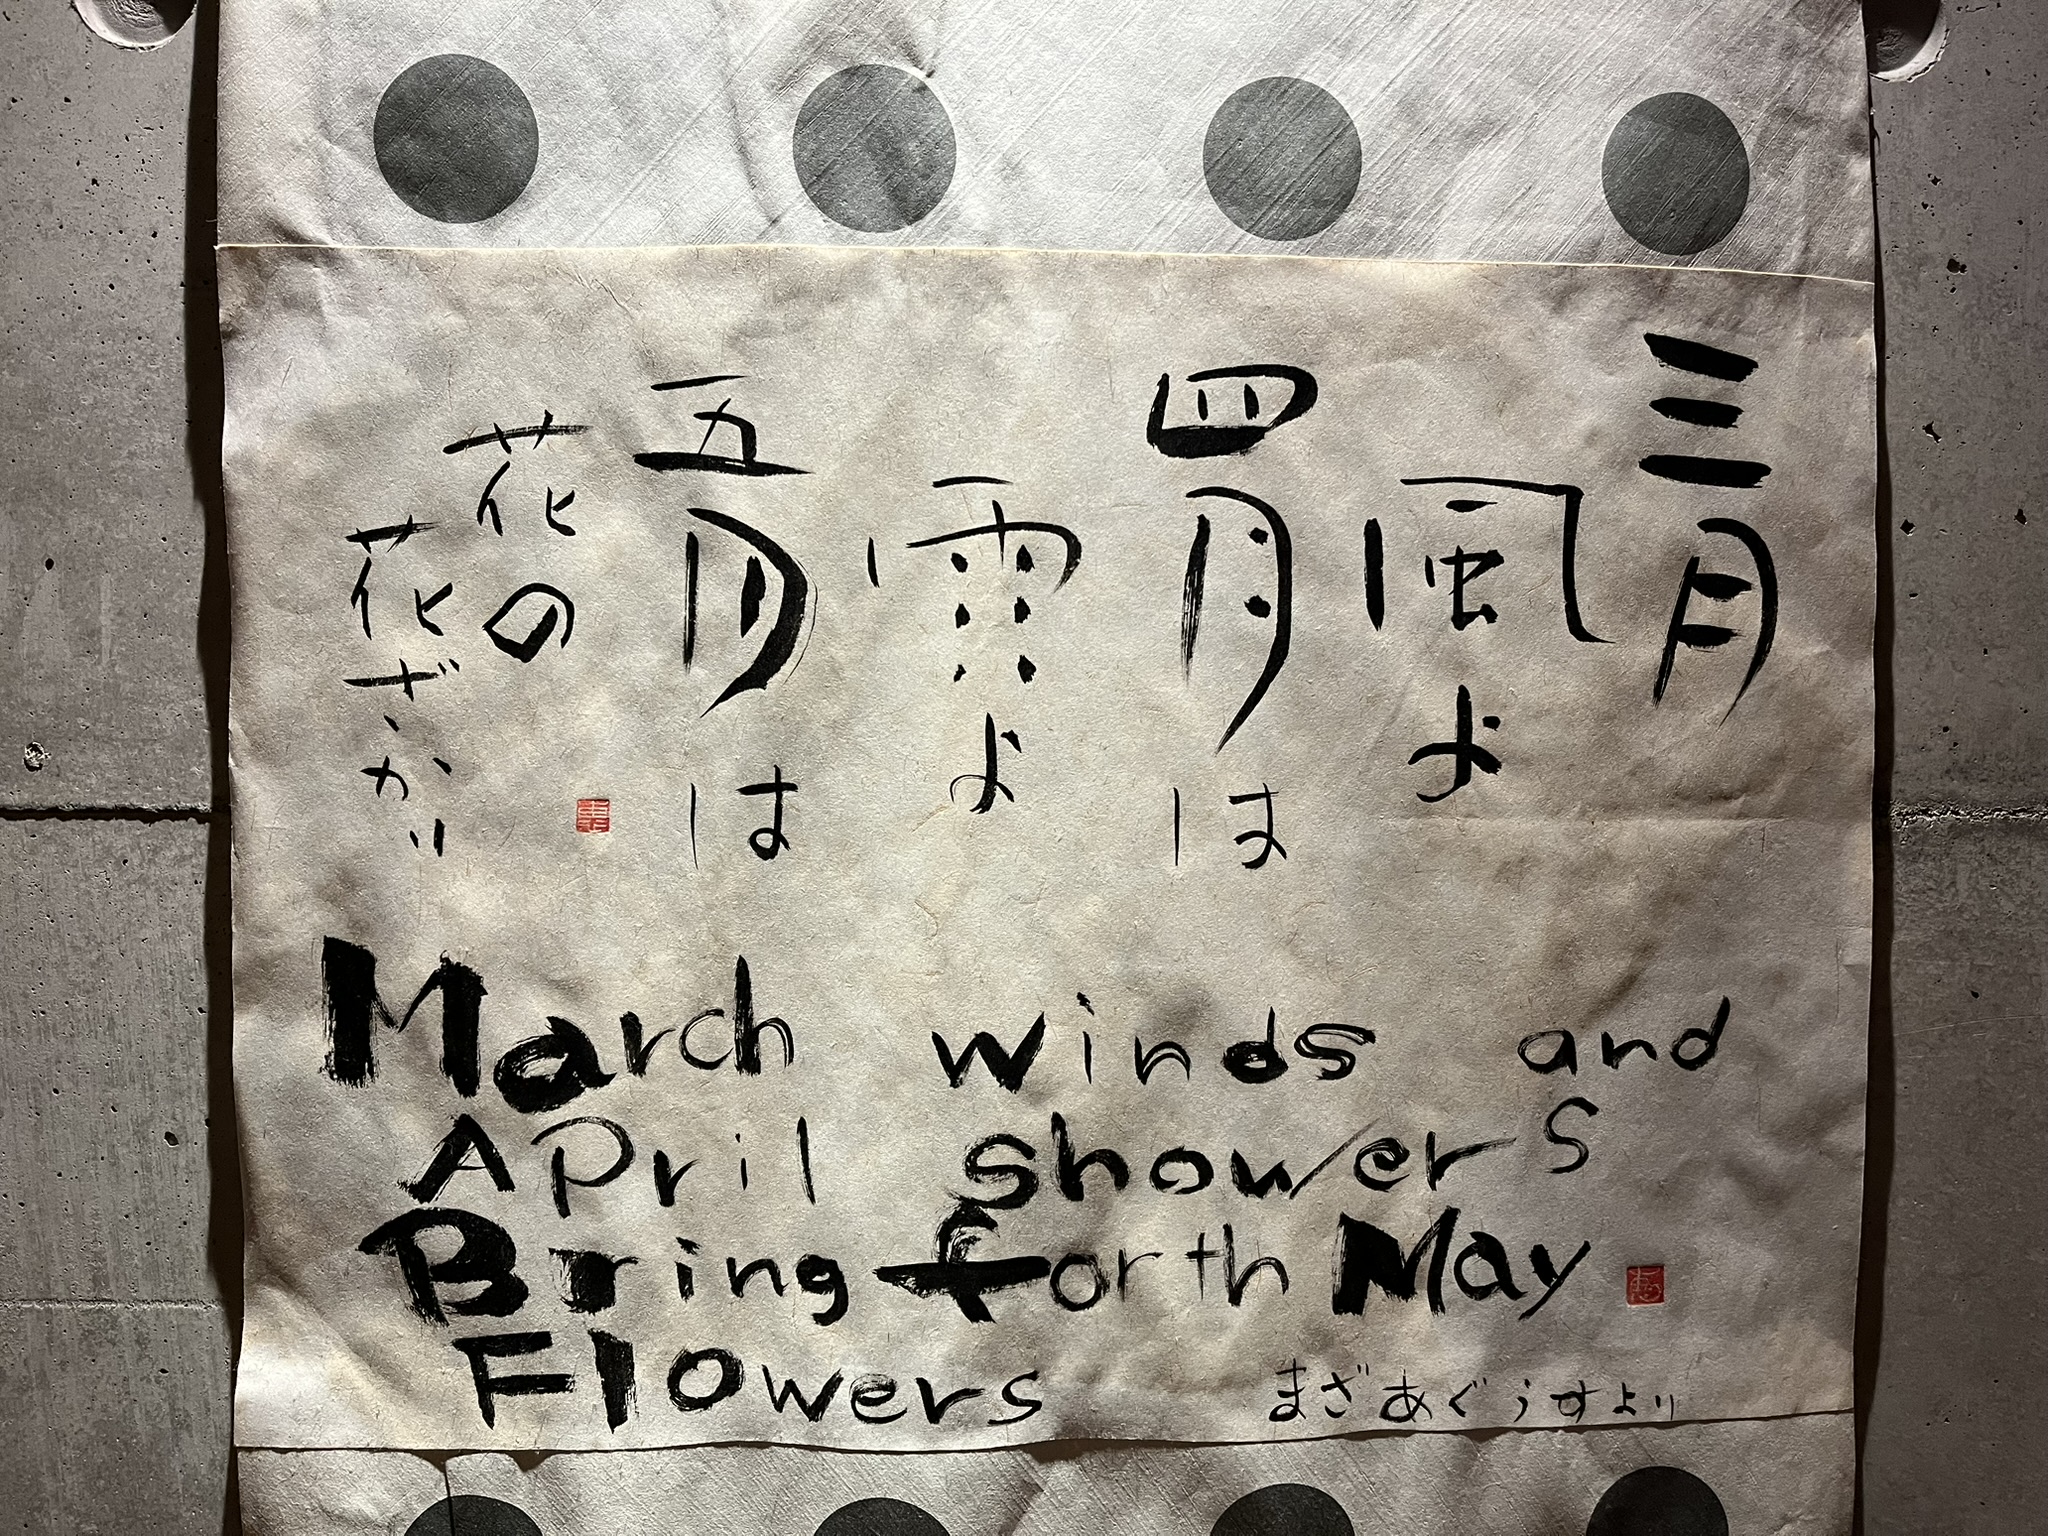 三月
風よ
四月は
雨よ
五月は
花の
花ざかり
March winds and
April showers
Bring forth May
Flowers
まざあぐうすより